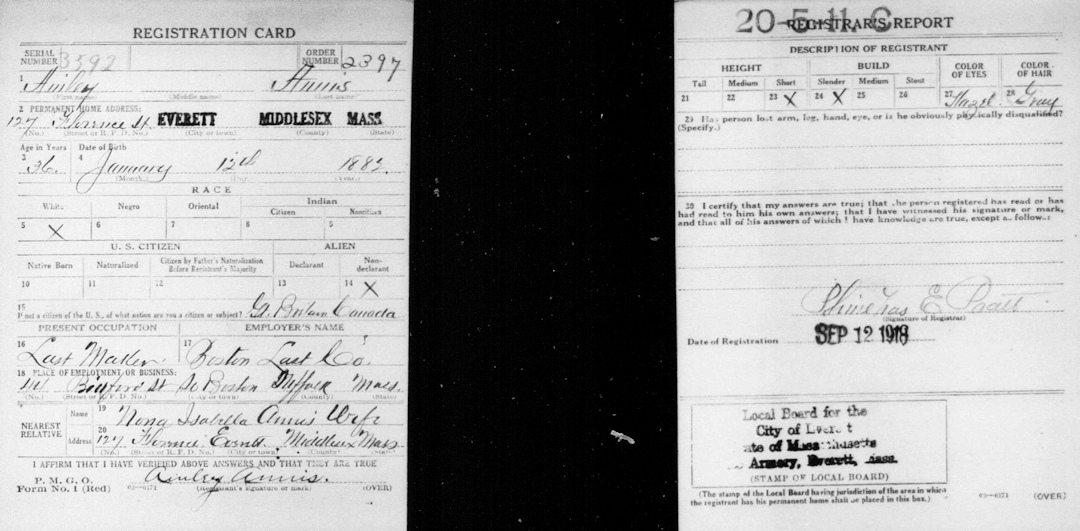 REGISTRATION CARD
SERIAL NUMBER 3592 ORDER NUMBER 2397
1 Ainley Annis
(First name) (Middle name) (Last name)
2 PERMANENT HOME ADDRESS:
127 Florence St. EVERETT MIDDLESEX MASS
(No.) (Street or R. F. D. No.) (City or town) (County) (State)
Age in Years Date of Birth
3 36 4 January 12th 1882
(Month.) (Day.) (Year.)
RACE
White Negro Oriental Indian
Citizen Noncitizen
5 X 6 7 8 9
U. S. CITIZEN ALIEN
Native Born Naturalized Citizen by Father's Naturalization Before Registrant's Majority Declarant Non-declarant
10 11 12 13 14 X
15 If not a citizen of the U. S., of what nation are you a citizen or subject? Gt. Britain Canada
PRESENT OCCUPATION EMPLOYER'S NAME
16 Last Maker. 17 Boston Last Co.
18 PLACE OF EMPLOYMENT OR BUSINESS:
44 Binford St So Boston Suffolk Mass.
(No.) (Street or R. F. D. No.) (City or town) (County) (State)
NEAREST RELATIVE Name 19 Nona Isabella Annis Wife
Address 20 127 Florence Everett Middlesex Mass
(No.) (Street or R. F. D. No.) (City or town) (County) (State)
I AFFIRM THAT I HAVE VERIFIED ABOVE ANSWERS AND THAT THEY ARE TRUE
P. M. G. O.
Form No. 1 (Red) 03—6171 Ainley Annis.
(Registrant's signature or mark) (OVER)
20-5-11. C
REGISTRAR'S REPORT
DESCRIPTION OF REGISTRANT
HEIGHT BUILD COLOR OF EYES COLOR OF HAIR
Tall Medium Short Slender Medium Stout
21 22 23 X 24 X 25 26 27 Hazel 28 Gray
29 Has person lost arm, leg, hand, eye, or is he obviously physically disqualified?
(Specify.)
30 I certify that my answers are true; that the person registered has read or has
had read to him his own answers; that I have witnessed his signature or mark,
and that all of his answers of which I have knowledge are true, except as follows:
Phinehas E Pratt
(Signature of Registrar)
Date of Registration SEP 12 1918
Local Board for the
City of Everett
ate of Massachusetts
Armory, Everett, Mass.
(STAMP OF LOCAL BOARD)
(The stamp of the Local Board having jurisdiction of the area in which
the registrant has his permanent home shall be placed in this box.)
03—6171 (OVER)